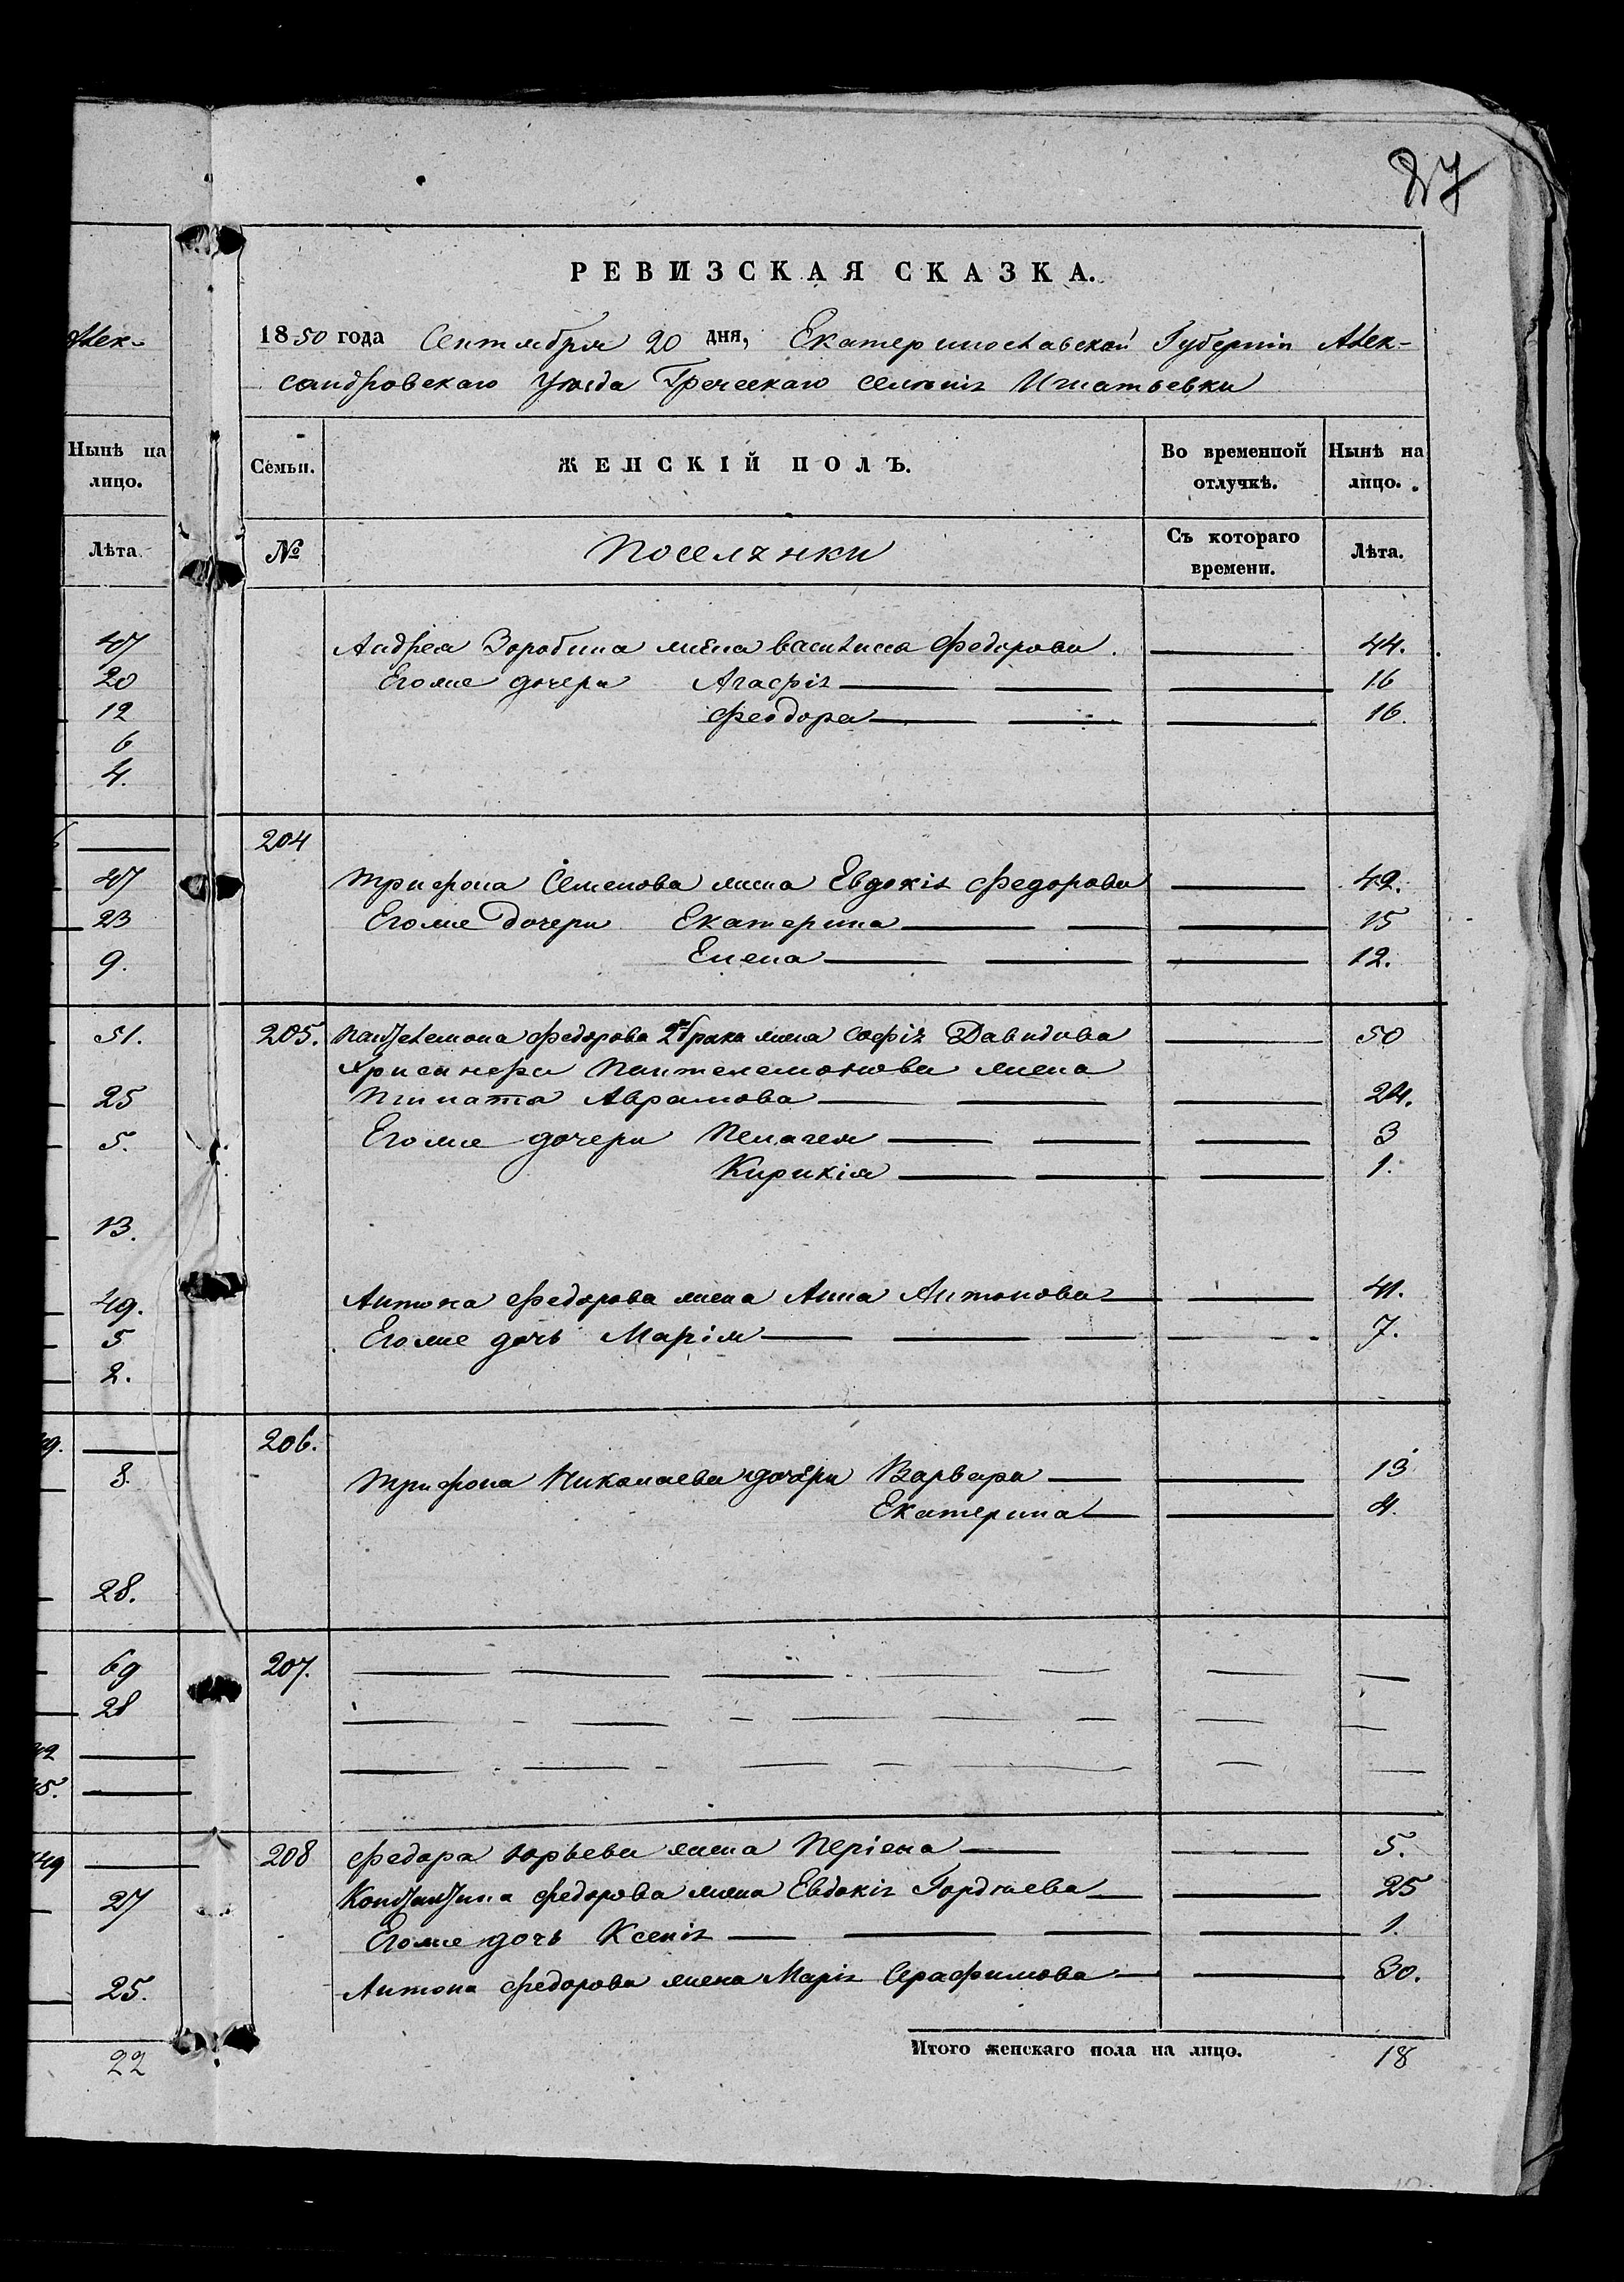 87
РЕВИЗСКАЯ СКАЗКА.
1850 года Сентября 20 дня, Екатеринославской Губерніи Алек-
сандровскаго Уѣзда Греческаго селенія Игнатьевки
Алек-
Нынѣ на лицо.
Лѣта
47
20
12
6
4.
47
23
9.
51.
25
5.
13.
49.
5
2.
8.
28.
69
28
27
25.
22
Семьи. ЖЕНСКІЙ ПОЛЪ. Во временной отлучкѣ. Нынѣ на лицо.
№ Поселянки Съ котораго времени. Лѣта.
Андрея Зоробина жена Василиса Федорова. 44.
Его же дочери Агафія 16
Феодора 16.
204
Трифона Семенова жена Евдокія Федорова 42.
Его же дочери Екатерина 15
Елена 12.
205. Пантелемона Федорова 2го брака жена Софія Давидова 50
Хрисанфа Пантелемонова жена
Аврамова 24.
Его же дочери Пелагея 3
Кирикія 1.
Антона Федорова жена Анна Антонова 41.
Его же дочь Марія 7.
206.
Трифона Николаева дочери Варвара 13
Екатерина 4.
207.
208 Федора Юрьева жена 5.
Константина Федорова жена Евдокія Гордѣева 25
Его же дочь Ксенія 1.
Антона Федорова жена Марія Серафимова 30.
Итого женскаго пола на лицо. 18